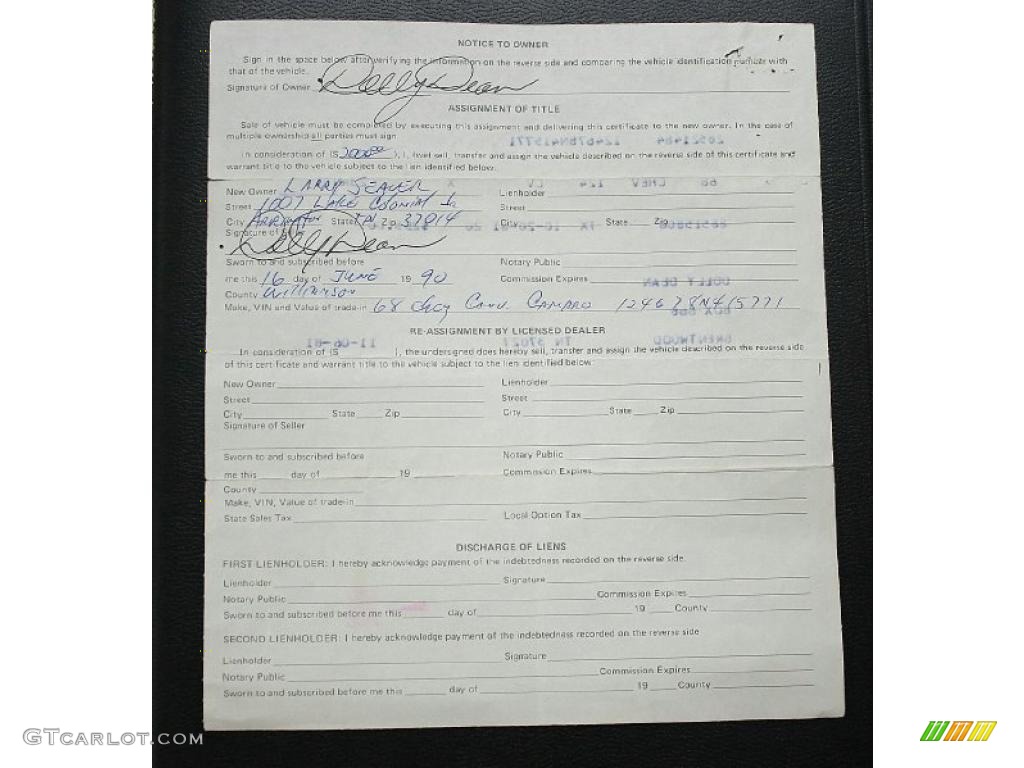 NOTICE TO OWNER
Sign in the space below after verifying the information on the reverse side and comparing the vehicle identification number with
that of the vehicle.
Signature of Owner Dolly Dean
ASSIGNMENT OF TITLE
Sale of vehicle must be completed by executing this assignment and delivering this certificate to the new owner. In the case of
multiple ownership all parties must sign
In consideration of ($ 2000.00 ), I, (we) sell, transfer and assign the vehicle described on the reverse side of this certificate and
warrant title to the vehicle subject to the lien identified below:
New Owner LARRY SEAVER Lienholder
Street 1007 LAKE COLONIAL Street
City ARRINGTON State TN Zip 37014 City State Zip
Signature of
Dolly Dean
Sworn to and subscribed before Notary Public
me this 16 day of JUNE 19 90 Commission Expires
County WILLIAMSON
Make, VIN and Value of trade-in 68 Chev Conv. CAMARO 124678N415771
RE-ASSIGNMENT BY LICENSED DEALER
In consideration of ($ ), the undersigned does hereby sell, transfer and assign the vehicle described on the reverse side
of this certificate and warrant title to the vehicle subject to the lien identified below:
New Owner Lienholder
Street Street
City State Zip City State Zip
Signature of Seller
Sworn to and subscribed before Notary Public
me this day of 19 Commission Expires
County
Make, VIN, Value of trade-in
State Sales Tax Local Option Tax
DISCHARGE OF LIENS
FIRST LIENHOLDER: I hereby acknowledge payment of the indebtedness recorded on the reverse side.
Lienholder Signature
Notary Public Commission Expires
Sworn to and subscribed before me this day of 19 County
SECOND LIENHOLDER: I hereby acknowledge payment of the indebtedness recorded on the reverse side
Lienholder Signature
Notary Public Commission Expires
Sworn to and subscribed before me this day of 19 County
GTCARLOT.COM